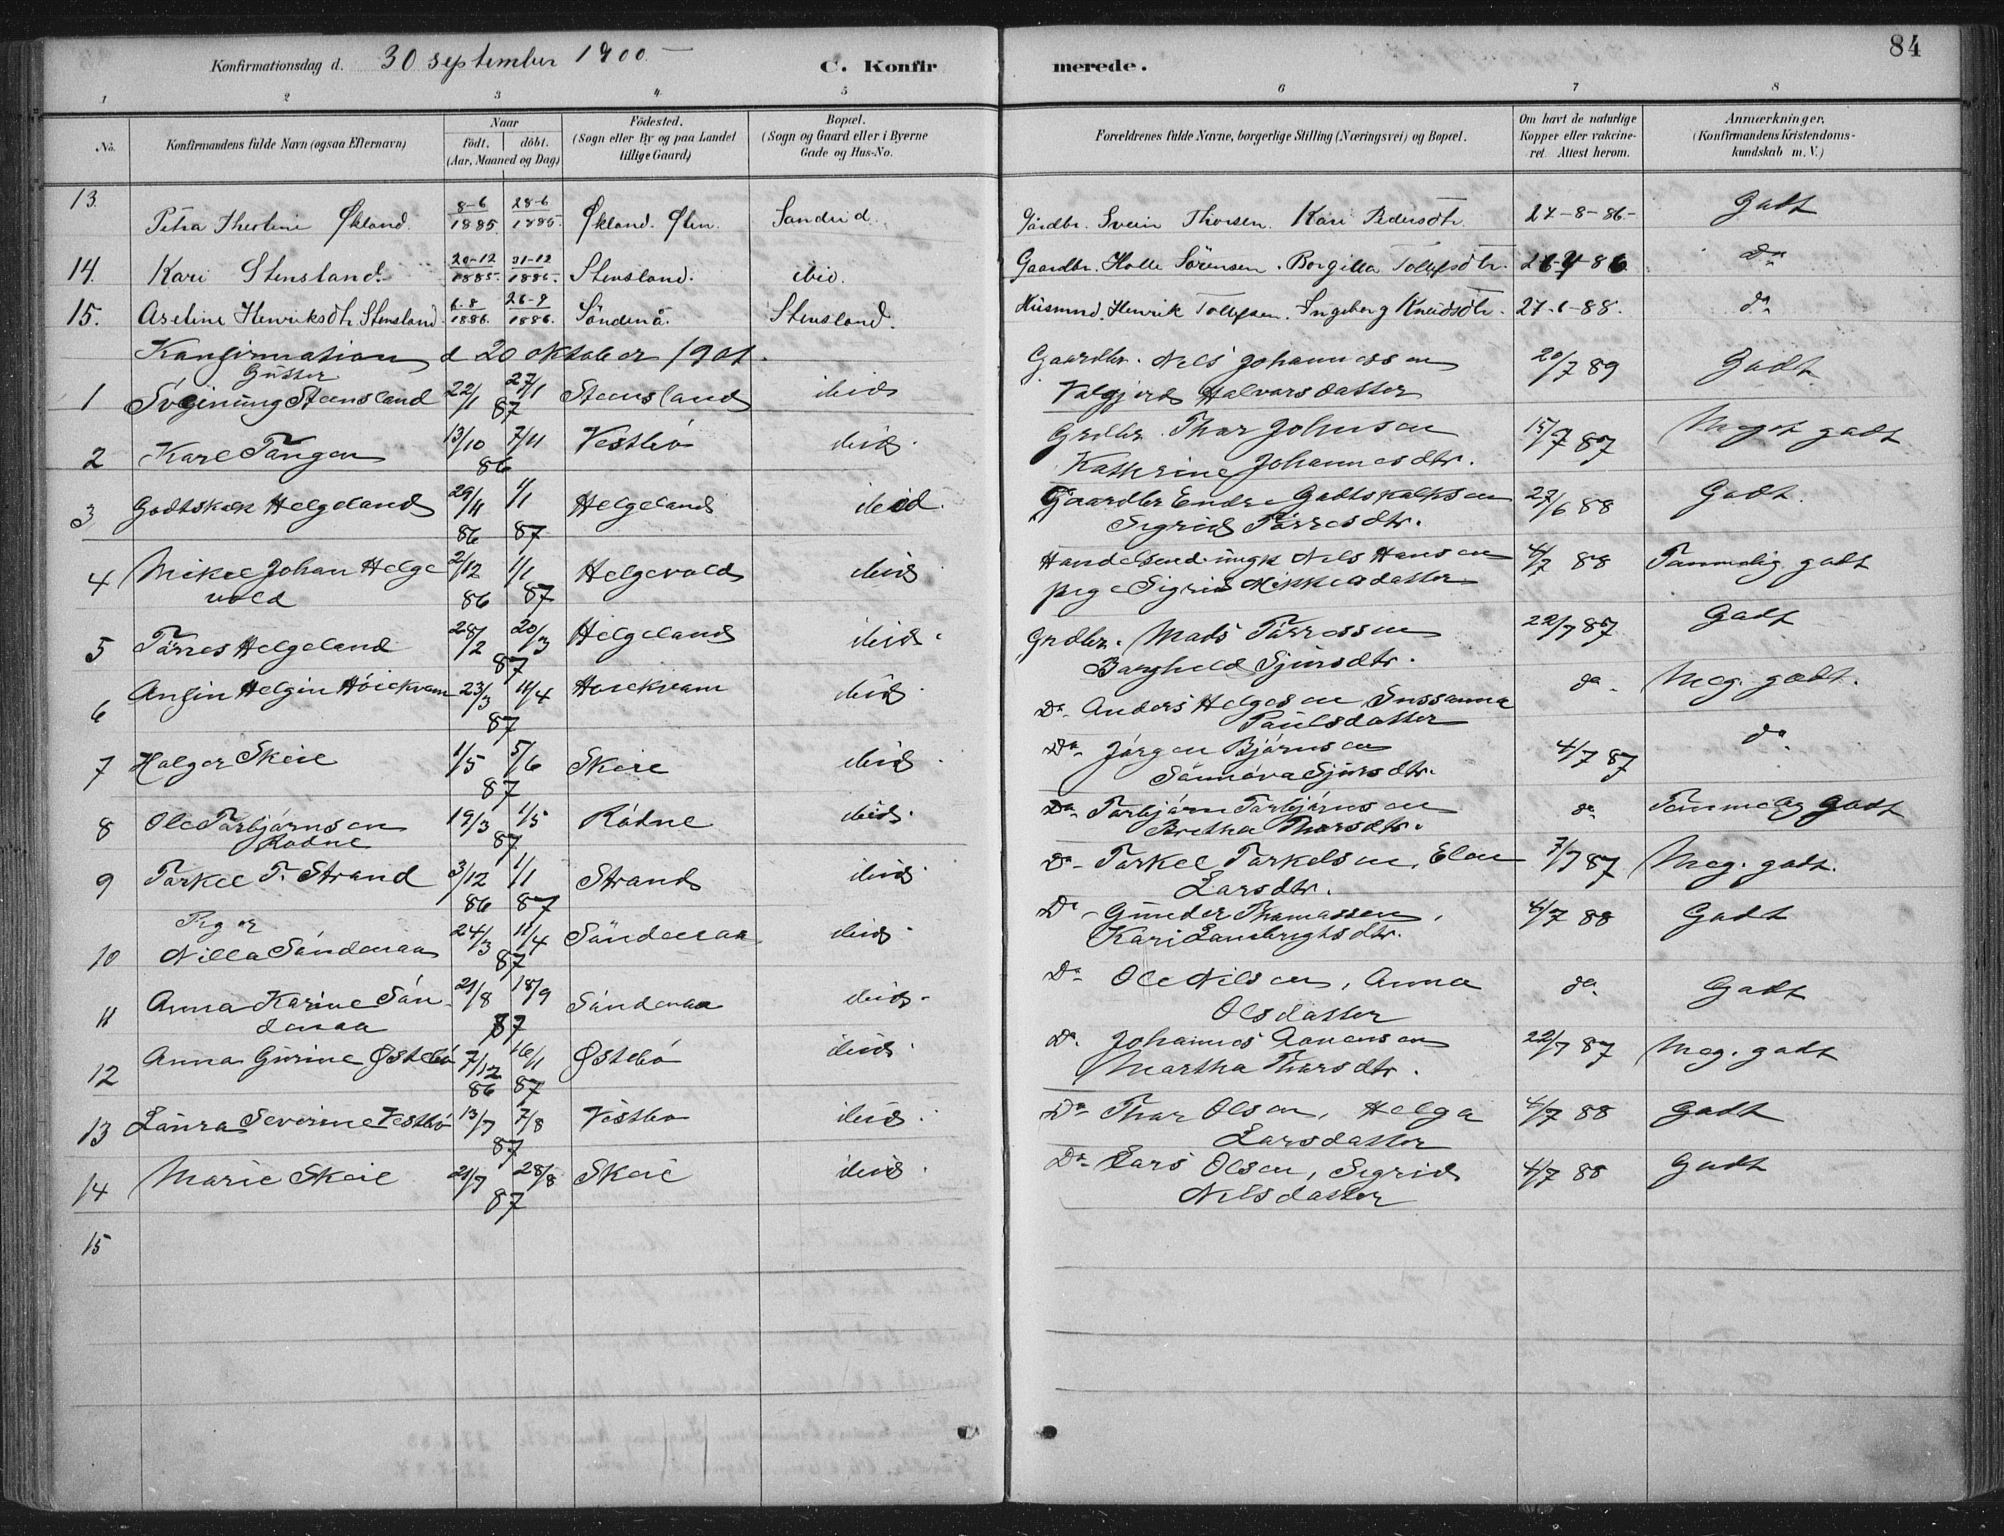 Konfirmationsdag d. 30 september 1900. C. Konfirmerede. 84
1 2 3 4 5 6 7 8
No. Konfirmandens fulde Navn (ogsaa Efternavn) Naar født, døbt. (Aar, Maaned og Dag) Fødested. (Sogn eller By og paa Landet tillige Gaard) Bopæl. (Sogn og Gaard eller i Byerne Gade og Hus-No. Forældrenes fulde Navne, borgerlige Stilling (Næringsvei) og Bopæl. Om havt de naturlige Kopper eller vakcineret. Attest herom. Anmærkninger. (Konfirmandens Kristendomskundskab m. V.)
13. Petra Økland. 8-6 1885. 28-6 1885. Økland. Ølen. Sandeid. Gårdbr. Svein Thorsen. Kari Pedersdtr. 27-8-86- Godt
14. Kari Stensland. 20-12 1885. 31-12 1885. Stensland. ibid. Gaardbr. Sörensen. Borgilla Tollefsdtr. Do
15. Aseline Henriksdtr Stensland. 6-8 1886. 1886. Söndenå. Stensland. Husmnd. Henrik Tollefsen. Ingeborg Knudsdtr. 27-6-88. do
Konfirmation d 20 oktober 1901.
1 Gutter Sveinung Stensland 22/1 27/1 87 Stensland ibid Gaardbr. Nels Johannessen Valgjerd Halvarsdatter 20/7 89 Godt
2 Karl Tangen 13/10 7/11 86 Vestbø ibid. Grdbr. Thor Johnsen Kathrine Johannesdtr. 15/7 87 Meget godt
3 Godtskalk Helgeland 29/11 86 1/1 87 Helgeland ibid. Gaardbr Endre Godtskalksen Sigrid Tørresdtr. 27/6 88 Godt.
4 Mikel Johan Helgevold 2/12 86 1/1 87 Helgevold ibid Nils Hansen pige Sigrid Mikkelsdatter 4/7 88 Temmelig godt
5 Tørres Helgeland 28/2 20/3 87 Helgeland ibid. Grdbr. Mads Tørressen Borghild Sjursdtr. 22/7 87 Godt
6 Helgin Høiekvam 23/3 11/4 87 Høiekvam ibid. Do. Anders Helgesen Sussanna Paulsdatter do. Meg. godt.
7 Holger Skeie 1/5 5/6 87 Skeie ibid. Do. Jørgen Bjørnsen Sønneva Sjursdtr. 4/7 87 do
8 Ole Torbjørnsen Rødne 19/3 1/5 87 Rødne ibid. Do. Torbjørn Torbjørnsen Bretha Thorsdtr. do. Temmelig Godt
9 Torkel T. Strand 3/12 86 1/1 87 Strand ibid. Do. Torkel Torkelsen, Elen Larsdtr. 7/7 87 Meg. godt.
10 Piger Nilla Søndenaa 24/3 11/4 87 Søndenaa ibid. Do. Gunder Thomassen, Kari Lambrigtsdtr. 4/7 88 Godt
11 Anna Karine Søndenaa 21/8 18/9 87 Søndenaa ibid. Do. Ole Nilsen, Anna Olsdatter do. Godt
12 Anna Gurine Østebø 7/12 86 16/1 87 Østebø ibid. D. Johannes Aanensen Martha Thorsdtr. 22/7 87 Meg. godt
13 Laura Severine Vestbø 13/7 7/8 87 Vestbø ibid. Do. Thor Olsen, Helga Larsdatter 4/7 88 Godt
14 Marie Skeie 21/7 28/8 87 Skeie ibid. Do. Lars Olsen, Sigrid Nilsdatter 4/7 88 Godt
15